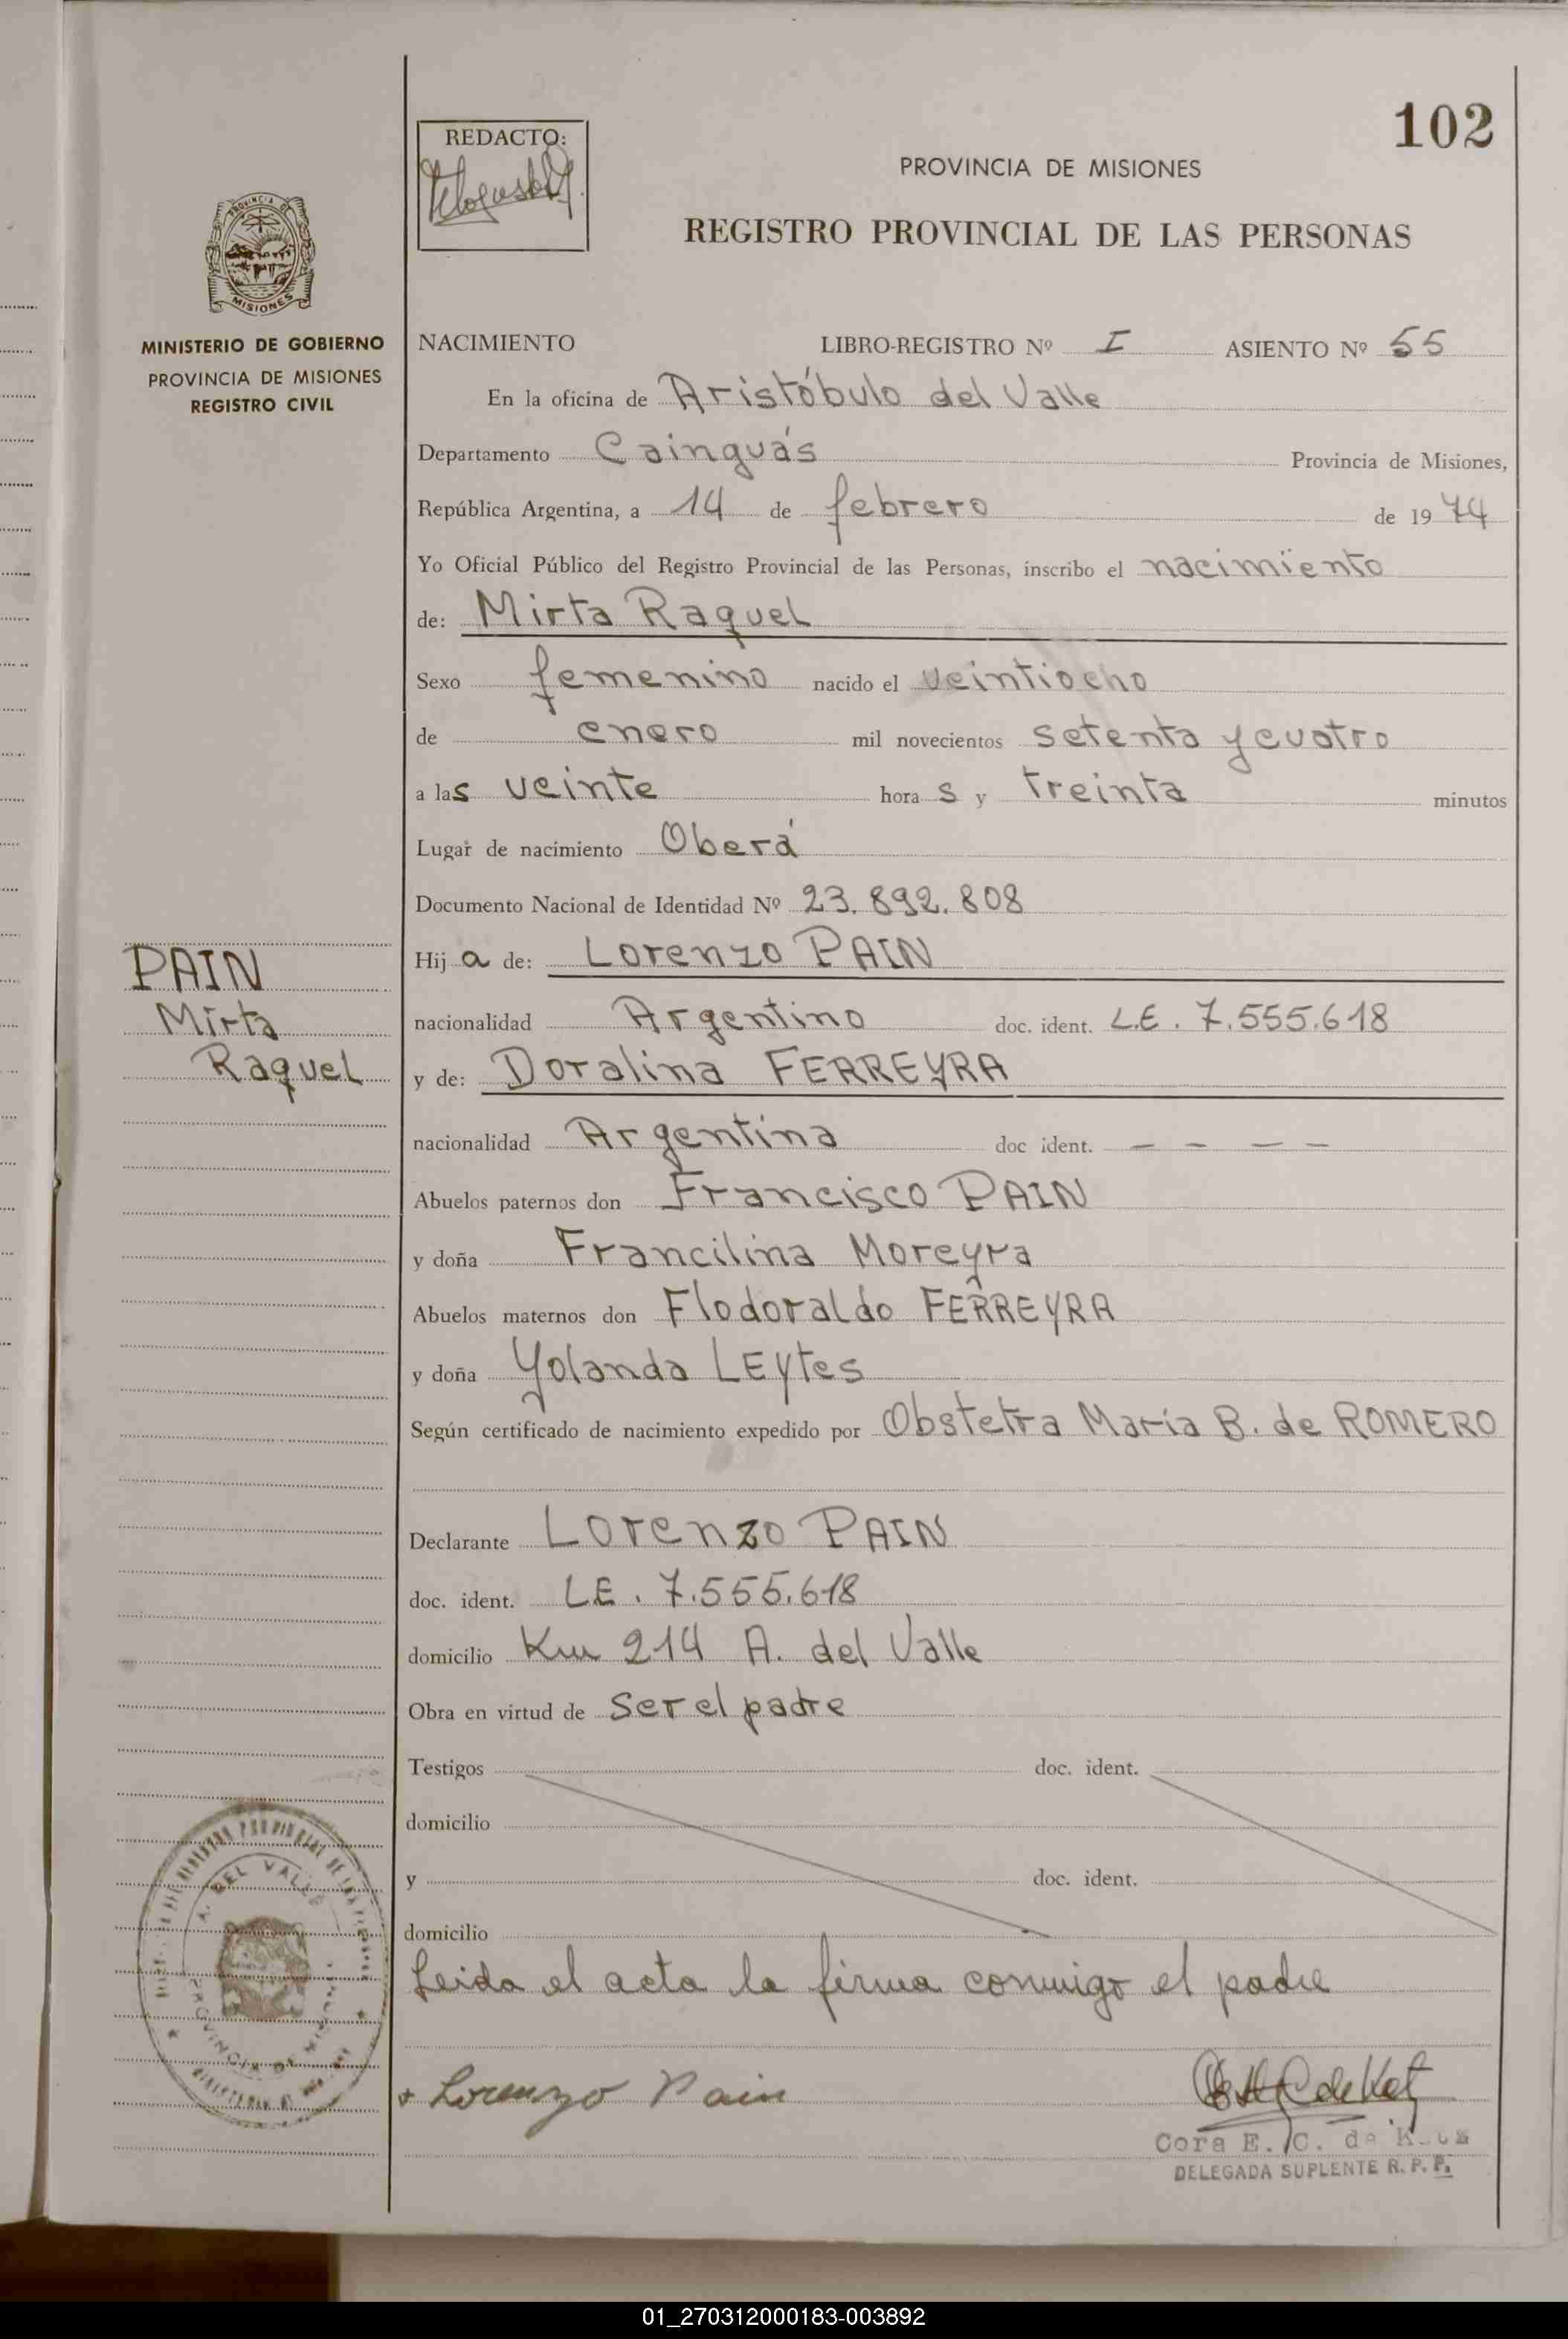 102
REDACTO:
PROVINCIA DE MISIONES
REGISTRO PROVINCIAL DE LAS PERSONAS
MISIONES
MINISTERIO DE GOBIERNO
PROVINCIA DE MISIONES
REGISTRO CIVIL
NACIMIENTO LIBRO-REGISTRO Nº I ASIENTO Nº 55
En la oficina de Aristóbulo del Valle
Departamento Cainguás Provincia de Misiones,
República Argentina, a 14 de febrero de 1974
Yo Oficial Público del Registro Provincial de las Personas, inscribo el nacimiento
de: Mirta Raquel
Sexo femenino nacido el veintiocho
de enero mil novecientos setenta y cuatro
a las veinte horas y treinta minutos
Lugar de nacimiento Oberá
Documento Nacional de Identidad Nº 23.892.808
PAIN
Mirta
Raquel
Hija de: Lorenzo PAIN
nacionalidad Argentino doc. ident. L.E. 7.555.618
y de: Doralina FERREYRA
nacionalidad Argentina doc ident. — — — —
Abuelos paternos don Francisco PAIN
y doña Francilina Moreyra
Abuelos maternos don Flodoraldo FERREYRA
y doña Yolanda LEytes
Según certificado de nacimiento expedido por Obstetra María B. de ROMERO
Declarante Lorenzo PAIN
doc. ident. L.E. 7.555.618
domicilio Km 214 A. del Valle
Obra en virtud de ser el padre
Testigos doc. ident.
domicilio
y doc. ident.
domicilio
Leida el acta la firma conmigo el padre
A. DEL VALLE
PROVINCIA DE
+ Lorenzo Pain
Cora E. C. de
DELEGADA SUPLENTE R. P. P.
01_270312000183-003892